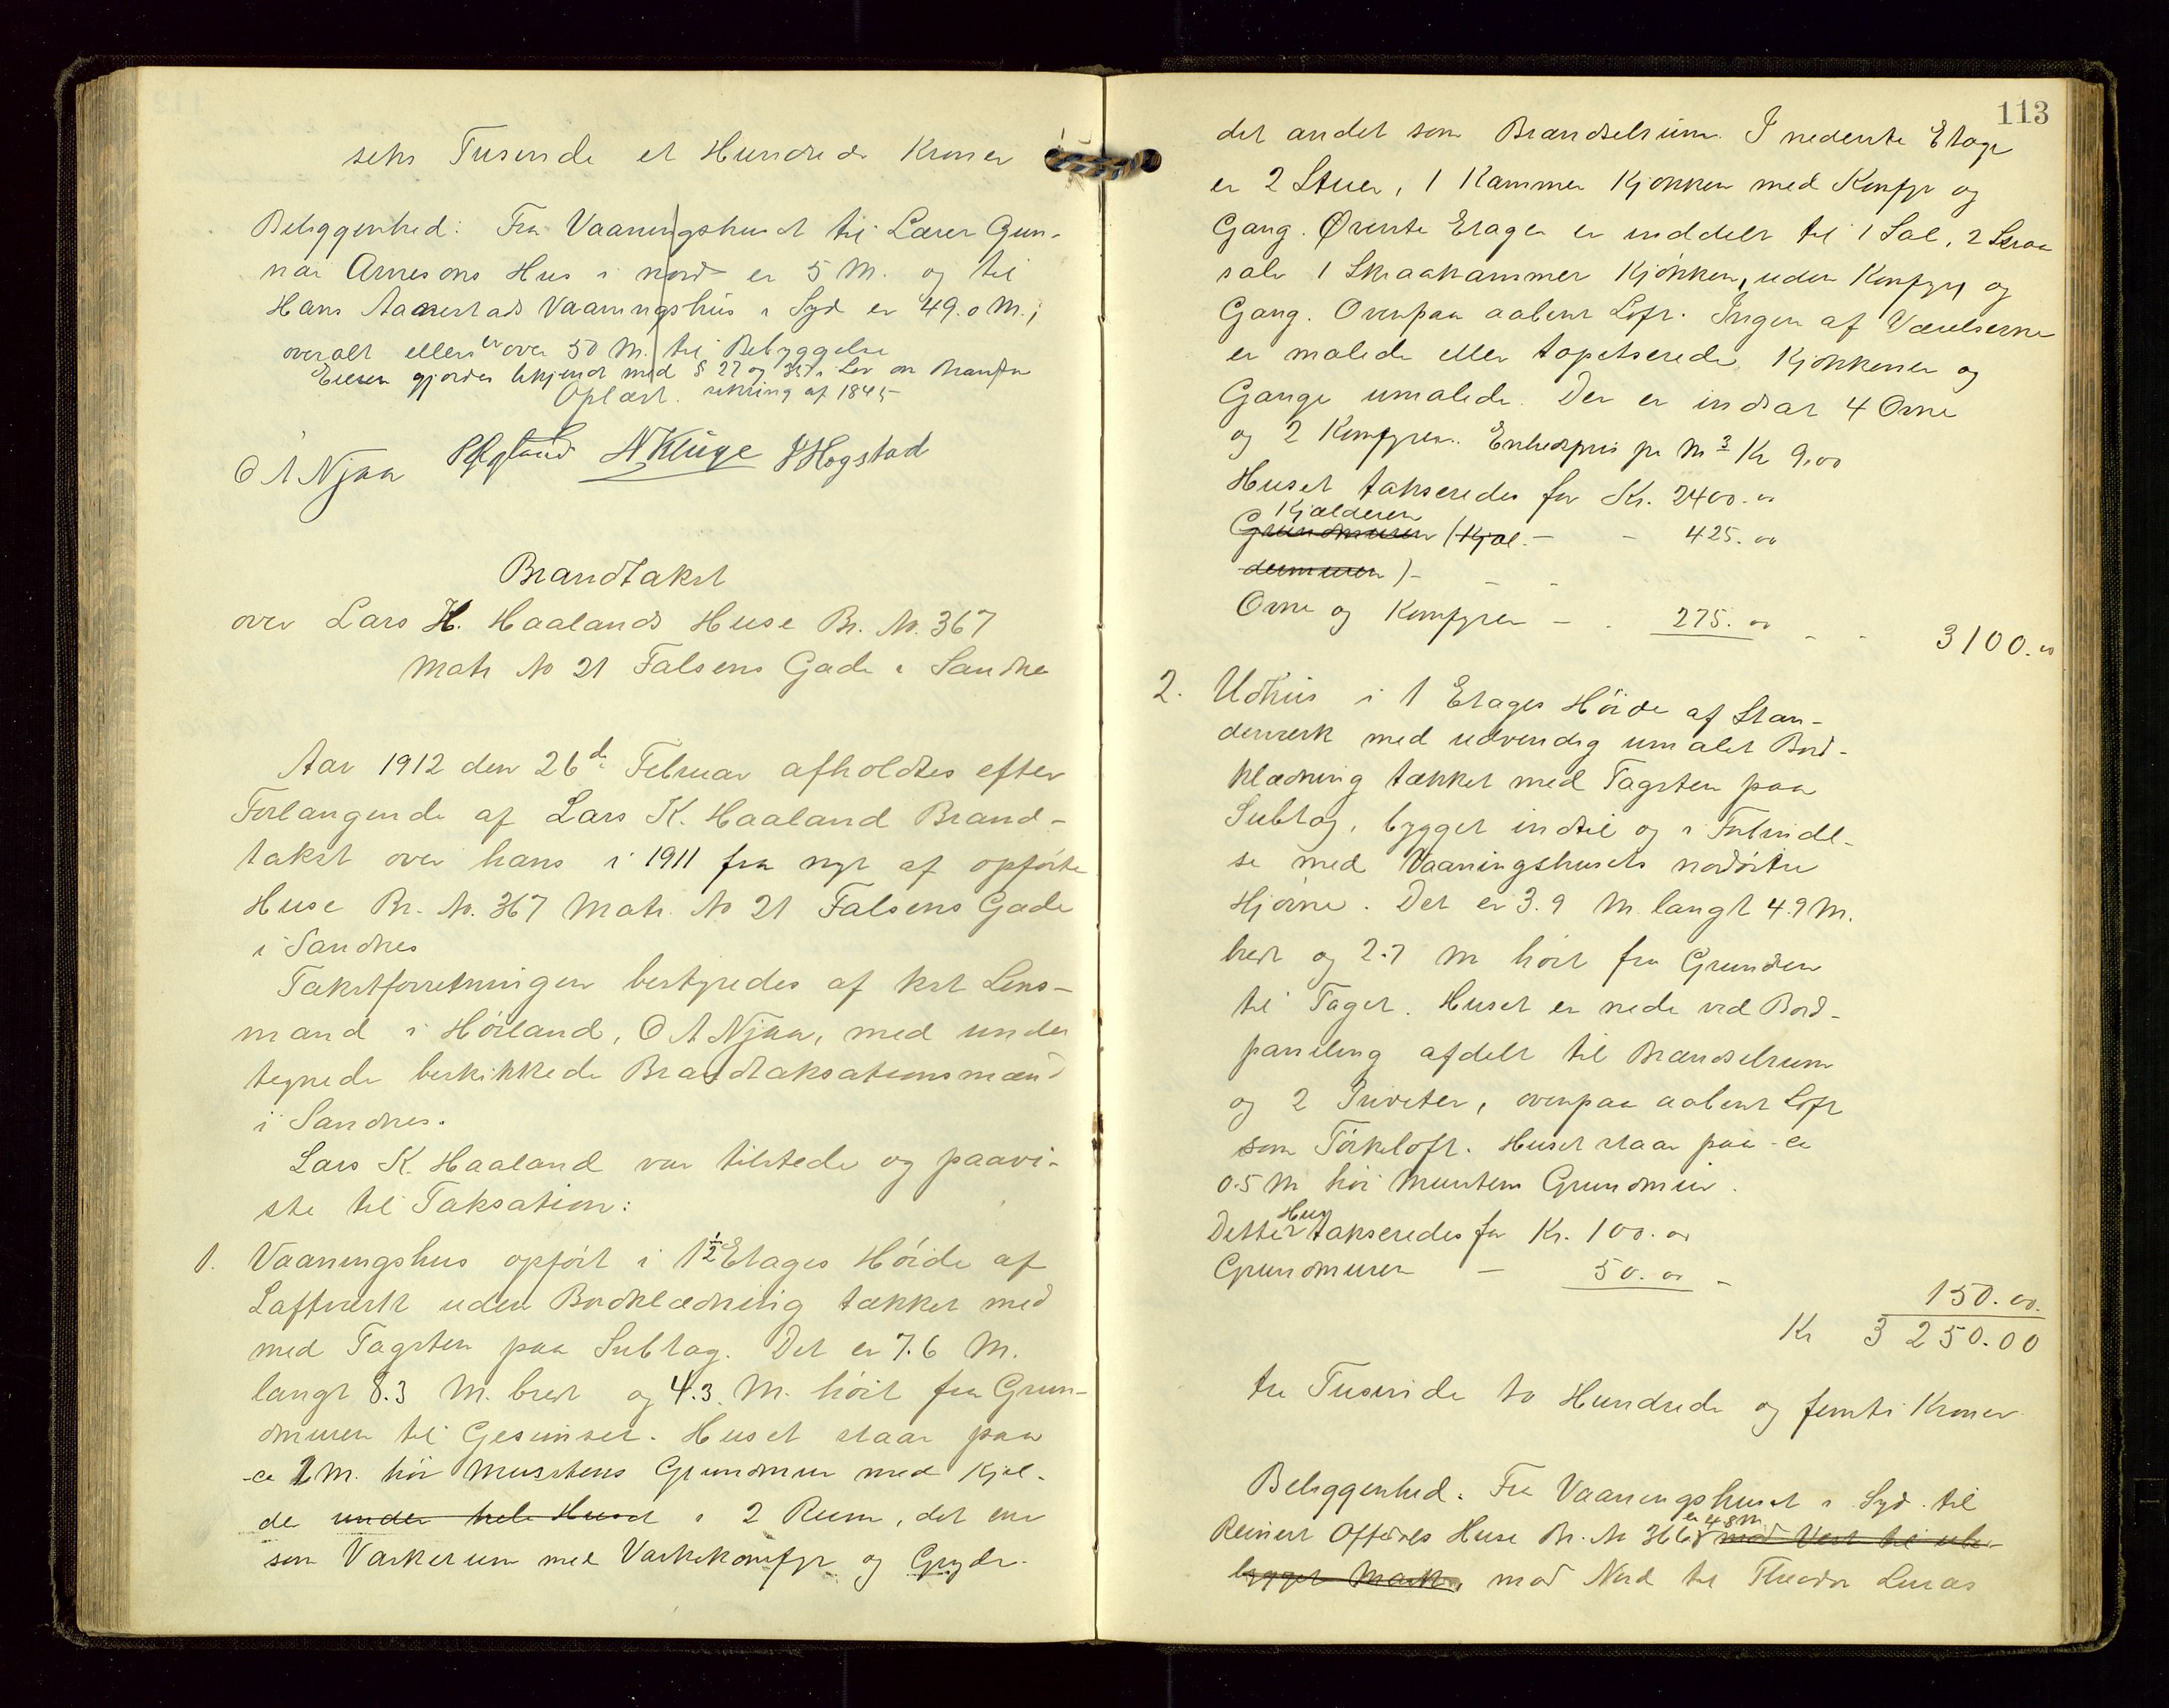 seks Tusende et Hundrede Kroner
Beliggenhed: Fra Vaaningshuset til Lærer Gun-
nar Arnesons Hus i nord er 5 M. og til
Hans Aanestads Vaaningshus i Syd er 49.0 M.;
overalt ellers er over 50 M. til Bebyggelse
Eieren gjordes bekjendt med § 27 og i Lov om Brandfor
Oplæst. sikring af 1845
O A Njaa N Kluge Hogstad
Brandtakst
over Lars H. Haalands Huse Br. No. 367
Matr No 21 Falsens Gade i Sandnes
Aar 1912 den 26de Februar afholdtes efter
Forlangende af Lars K. Haaland Brand-
takst over hans i 1911 fra nyt af opførte
Huse Br. No. 367 Matr. No 21 Falsens Gade
i Sandnes
Takstforretningen bestyredes af kst Lens-
mand i Høiland, O A Njaa, med under
tegnede beskikkede Brandtaksationsmænd
i Sandnes.
Lars K. Haaland var tilstede og paavi-
ste til Taksation:
1. Vaaningshus opført i 1½ Etages Høide af
Laftverk uden Bordklædning tækket med
med Tagsten paa Subtag. Det er 7.6 M.
langt 8.3 M. bredt og 4.3 M. høit fra Grun-
dmuren til Gesimset. Huset staar paa
ca 2 M. høi Murstens Grundmur med Kjel-
der under hele Huset i 2 Rum, det ene
som Vaskerum med Vaskekomfyr og Gryde.
113
det andet som Brændselrum. I nederste Etage
er 2 Stuer, 1 Kammer Kjøkken med Komfyr og
Gang. Øverste Etage er inddelt til 1 Sal, 2 Skraa
sale 1 Skraakammer Kjøkken, uden Komfyr, og
Gang. Ovenpaa aabent Loft. Ingen af Værelserne
er malede eller tapetserede, Kjøkkener og
Gange umalede. Der er indsat 4 Ovne
og 2 Komfyrer. Enhedspris pr M3 Kr 9.00
Huset takseredes for Kr. 2400.00
Kjælderen
Grundmuren (Kjæl- - - 425.00
dermuren) - - -
Ovne og Komfyrer - - 275.00 - - 3100.00
2. Udhus i 1 Etages Høide af Stan-
derverk med udvendig umalet Bord-
klædning tækket med Tagsten paa
Subtag, bygget indtil og i Forbindel-
se med Vaaningshusets nordøstre
Hjørne. Det er 3.9 M. langt 4.9 M.
bredt og 2.7 M høit fra Grunden
til Taget. Huset er nede ved Bord-
paneling afdelt til Brændselrum
og 2 Priveter, ovenpaa aabent Loft
som Tørkeloft. Huset staar paa ca
0.5 M høi Murstens Grundmur.
Hus
Dette takseredes for Kr. 100.00
Grundmuren - 50.00 -
150.00.
Kr 3 250.00
tre Tusinde to Hundrede og femti Kroner.
Beliggenhed. Fra Vaaningshuset i Syd til
er 4.8 M
Reinert Huse Br. No 366 mod Vest til ube-
bygget Mark, mod Nord til Theodor Lucas